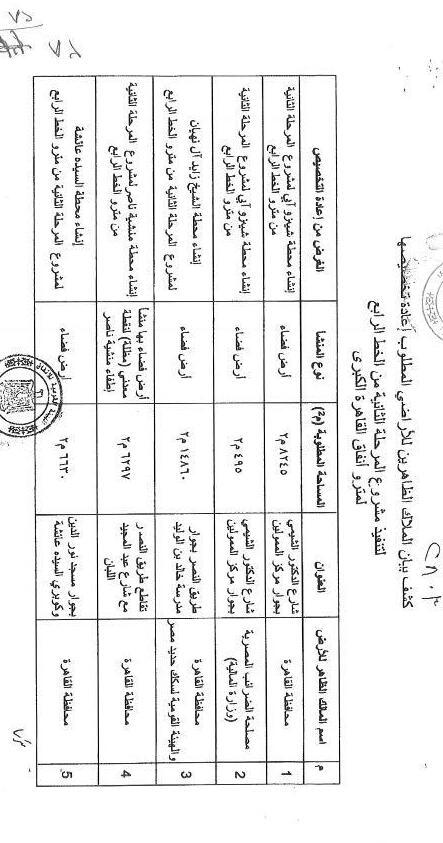 كشف بيان الملاك الظاهرين للأراضي المطلوب إعادة تخصيصها
لتنفيذ مشروع المرحلة الثانية من الخط الرابع
لمترو أنفاق القاهرة الكبرى
م | اسم الملاك الظاهر للأرض | العنوان | المساحة المطلوبة (م2) | نوع المنشا | الغرض من إعادة التخصيص
1 | محافظة القاهرة | شارع الدكتور الشيمي | ٨٢٤٥ م٢ | أرض فضاء | إنشاء محطة شيزو آبي لمشروع المرحلة الثانية
بجوار مركز الممولين | من مترو الخط الرابع
2 | مصلحة الضرائب المصرية | شارع الدكتور الشيمي | ٤٩٥ م٢ | أرض فضاء | إنشاء محطة شيزو آبي لمشروع المرحلة الثانية
(وزارة المالية) | بجوار مركز الممولين | من مترو الخط الرابع
3 | محافظة القاهرة | طريق النصر بجوار | ١٤٨٦٠ م٢ | أرض فضاء | إنشاء محطة الشيخ زايد آل نهيان
والهيئة القومية لسكك حديد مصر | مدرسة خالد بن الوليد | لمشروع المرحلة الثانية من مترو الخط الرابع
4 | محافظة القاهرة | تقاطع طريق النصر | ٦٢٩٧ م٢ | أرض فضاء بها منشا | إنشاء محطة منشية ناصر لمشروع المرحلة الثانية
مع شارع عبد المجيد | معدني (مظلة) لنقطة | من مترو الخط الرابع
اللبان | إطفاء منشية ناصر
5 | محافظة القاهرة | بجوار مسجد نور الدين | ٦٦٣٠ م٢ | أرض فضاء | إنشاء محطة السيده عائشة
وكوبري السيده عائشة | لمشروع المرحلة الثانية من مترو الخط الرابع